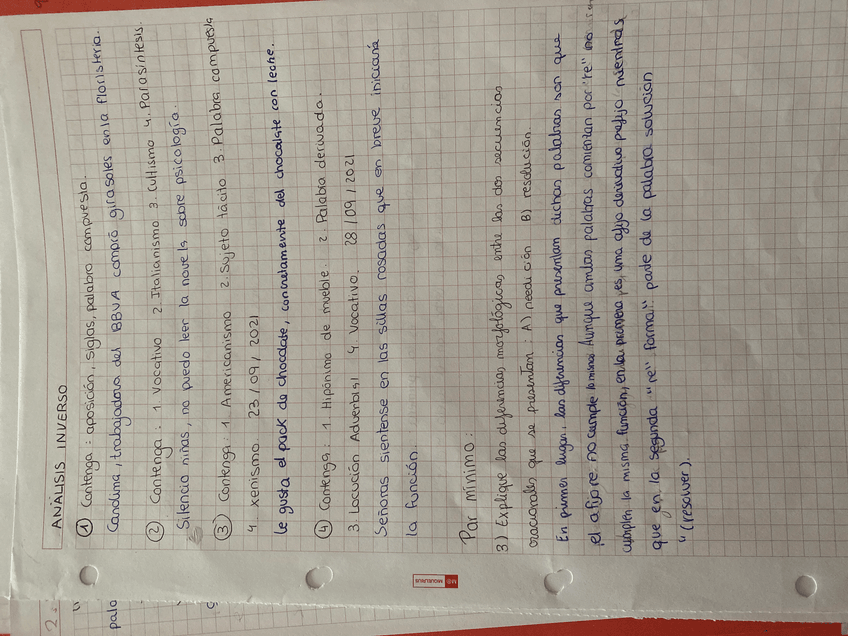 ANÁLISIS INVERSO
① Contenga: aposición, siglas, palabra compuesta.
Carolina, trabajadora del BBVA compró girasoles en la floristería.
② Contenga: 1 Vocativo 2. Italianismo 3. Cultismo 4. Parasíntesis.
Silencio niñas, no puedo leer la novela sobre psicología.
③ Contenga: 1 Americanismo 2. Sujeto tácito 3. Palabra compuesta
4 xenismo. 23/09/2021
Le gusta el pack de chocolate, concretamente del chocolate con leche.
④ Contenga: 1 Hipónimo de mueble. 2. Palabra derivada.
3. Locución Adverbial 4 Vocativo. 28/09/2021
Señoras sientense en las sillas rosadas que en breve iniciará
la función.
Par mínimo:
3) Explique las diferencias morfológicas entre las dos secuencias
oracionales que se presentan: A) reedición B) resolución.
En primer lugar, las diferencias que presentan dichas palabras son que
el afijo re no cumple la misma Aunque ambas palabras comienzan por "re" no
cumplen la misma función, en la primera es una afijo derivativo prefijo mientras
que en la segunda "re" forma parte de la palabra solución
"(resolver).
2.
palo
MIQUELRIUS